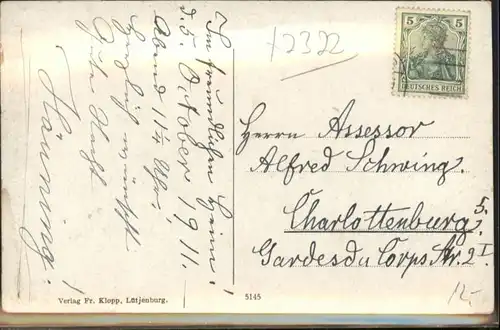 Im freundlichen Heim!
d. 5. Oktober 1911.
Abend 11¼ Uhr.
Herzlich wünscht
Gute Nacht
!
x2322
5 5
DEUTSCHES REICH
Herrn Assessor
Alfred Schwing.
Charlottenburg 5.
Gardes du Corps Str. 2 I
12.-
Verlag Fr. Klopp, Lütjenburg.
5145